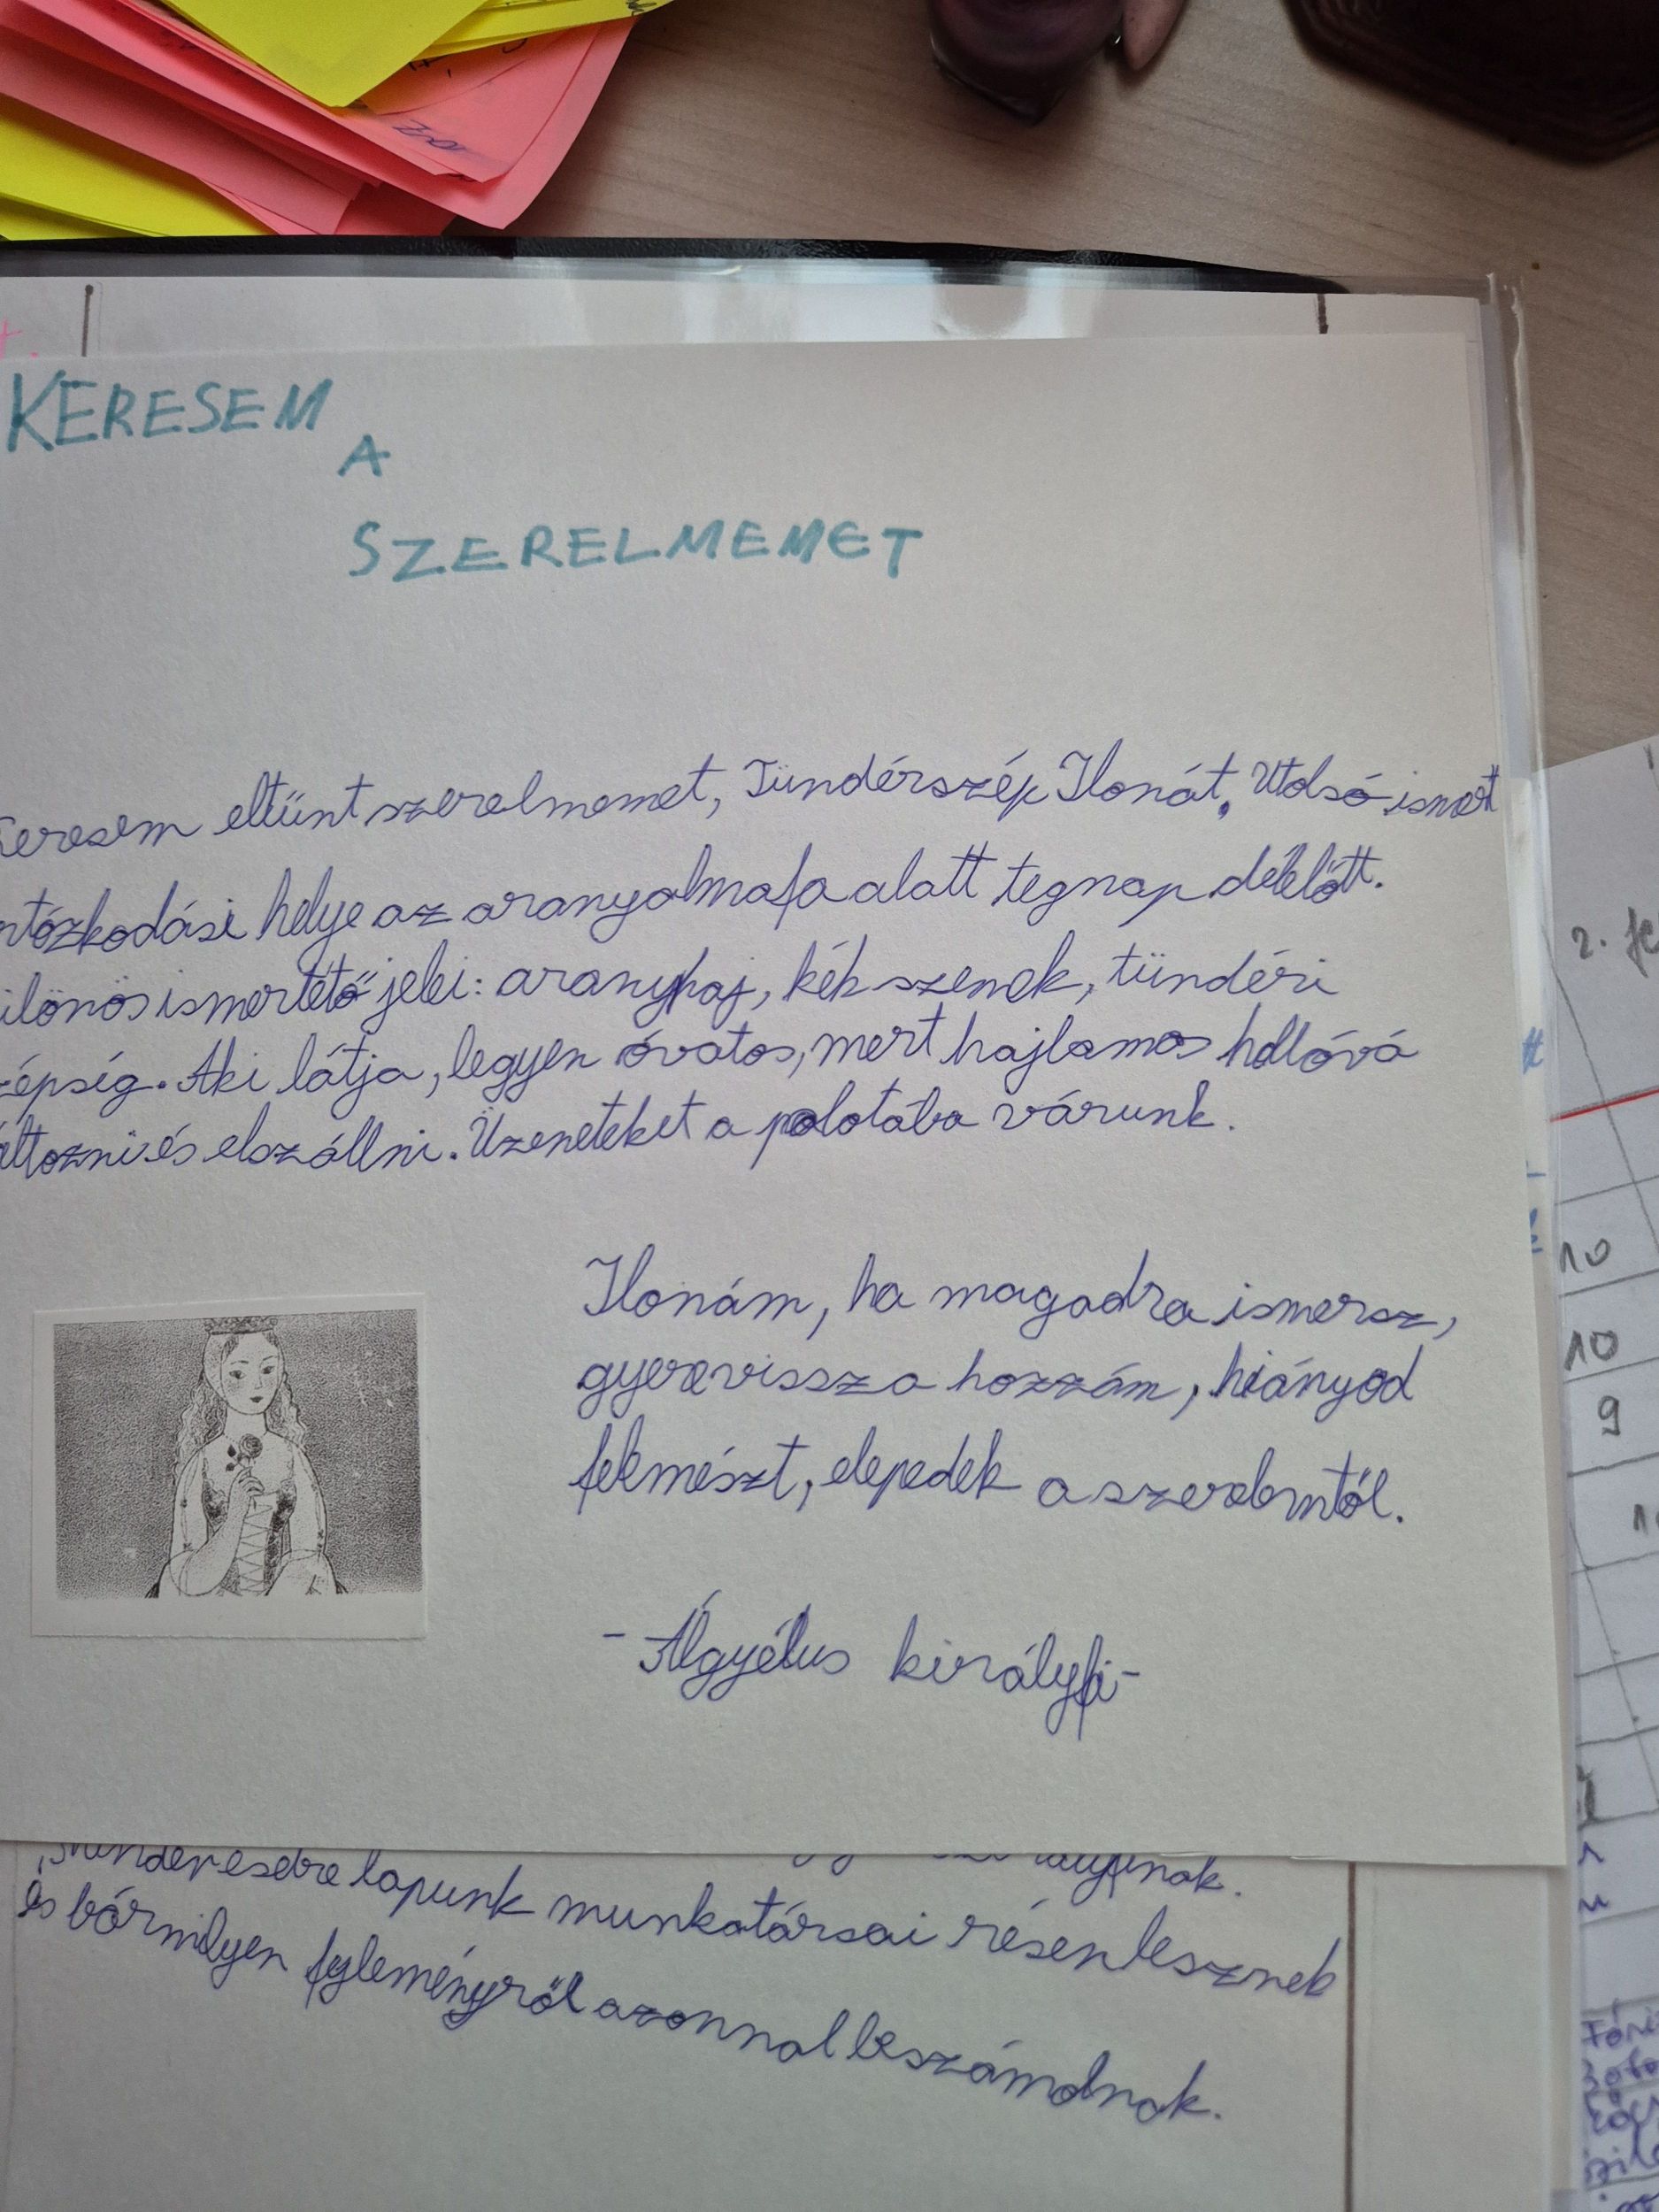 KERESEM
A
SZERELMEMET
Keresem eltűnt szerelmemet, Tündérszép Ilonát. Utolsó ismert
ntózkodási helye az aranyalmafa alatt tegnap délelőtt.
ülönös ismertető jelei: aranyhaj, kék szemek, tündéri
zépség. Aki látja, legyen óvatos, mert hajlamos hollóvá
áltozni és elszállni. Üzeneteket a palotába várunk.
Ilonám, ha magadra ismersz,
gyere vissza hozzám, hiányod
felemészt, elepedek a szerelemtől.
- Álgyélus királyfi -
lapunk munkatársai résen lesznek
és bármilyen fejleményről azonnal beszámolnak.
2. fe
10
10
9